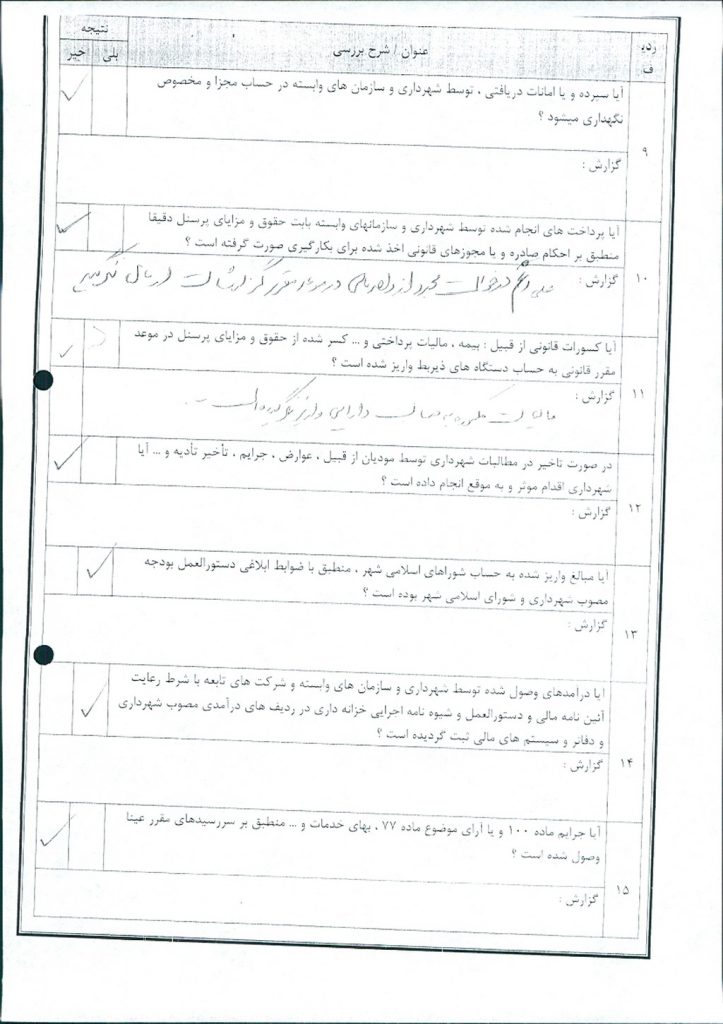 ردیف
عنوان / شرح بررسی
نتیجه
بلی
خیر
آیا سپرده و یا امانات دریافتی ، توسط شهرداری و سازمان های وابسته در حساب مجزا و مخصوص
نگهداری میشود ؟
۹
گزارش :
آیا پرداخت های انجام شده توسط شهرداری و سازمانهای وابسته بابت حقوق و مزایای پرسنل دقیقا
منطبق بر احکام صادره و یا مجوزهای قانونی اخذ شده برای بکارگیری صورت گرفته است ؟
۱۰
گزارش :
آیا کسورات قانونی از قبیل : بیمه ، مالیات پرداختی و ... کسر شده از حقوق و مزایای پرسنل در موعد
مقرر قانونی به حساب دستگاه های ذیربط واریز شده است ؟
۱۱
گزارش :
مالیات
در صورت تاخیر در مطالبات شهرداری توسط مودیان از قبیل ، عوارض ، جرایم ، تأخیر تأدیه و ... آیا
شهرداری اقدام موثر و به موقع انجام داده است ؟
۱۲
گزارش :
آیا مبالغ واریز شده به حساب شوراهای اسلامی شهر ، منطبق با ضوابط ابلاغی دستورالعمل بودجه
مصوب شهرداری و شورای اسلامی شهر بوده است ؟
۱۳
گزارش :
ایا درامدهای وصول شده توسط شهرداری و سازمان های وابسته و شرکت های تابعه با شرط رعایت
آئین نامه مالی و دستورالعمل و شیوه نامه اجرایی خزانه داری در ردیف های درآمدی مصوب شهرداری
و دفاتر و سیستم های مالی ثبت گردیده است ؟
۱۴
گزارش :
آیا جرایم ماده ۱۰۰ و یا آرای موضوع ماده ۷۷ ، بهای خدمات و ... منطبق بر سررسیدهای مقرر عینا
وصول شده است ؟
۱۵
گزارش :